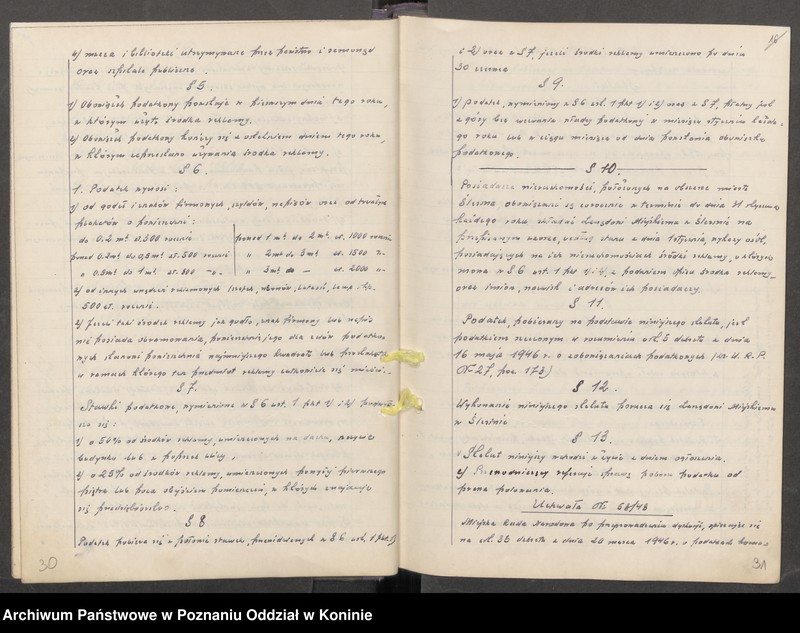 4) muzea i biblioteki utrzymywane przez państwo i samorząd
oraz szpitale publiczne.
§ 5.
1) Obowiązek podatkowy powstaje w pierwszym dniu tego roku,
w którym użyto środka reklamy.
2) Obowiązek podatkowy kończy się z ostatnim dniem tego roku,
w którym zaprzestano używania środka reklamy.
§ 6.
1. Podatek wynosi:
1) od godeł i znaków firmowych, szyldów, napisów oraz od trwałych
plakatów o powierzchni:
do 0.2 m² zł. 300 rocznie
ponad 0.2 m² do 0,5 m² zł. 500 rocznie
" 0.5 m² do 1 m² zł. 800 -„-
ponad 1 m² do 2 m² zł. 1000 rocznie
" 2 m² do 3 m² zł. 1500 "-
" 3 m² do - zł. 2000 "-
2) od innych urządzeń reklamowych
500 zł. rocznie.
2) Jeżeli taki środek reklamy jak godło, znak firmowy lub napis
nie posiada obramowania, powierzchnią jego dla celów podatko-
wych stanowi powierzchnia najmniejszego kwadratu lub prostokąta
w ramach którego ten przedmiot reklamy całkowicie się mieści.
§ 7.
Stawki podatkowe, wymienione w § 6 ust. 1 pkt 1) i 2)
sza się:
1) o 50% od środków reklamy, umieszczonych na dachu,
budynku lub w poprzek ulicy,
2) o 25% od środków reklamy, umieszczonych powyżej pierwszego
piętra lub poza obrębem pomieszczeń, w których znajduje
się przedsiębiorstwo.
§ 8
Podatek pobiera się w połowie stawek, przewidzianych w § 6 ust. 1 pkt. 1)
30
i 2) oraz w § 7, jeżeli środki reklamy umieszczono po dniu
30 czerwca
§ 9.
1) Podatek, wymieniony w § 6 ust. 1 pkt 1) i 2) oraz w § 7, płatny jest
z góry bez wezwania władzy podatkowej w miesiącu styczniu każde-
go roku lub w ciągu miesiąca od dnia powstania obowiązku
podatkowego.
§ 10.
Posiadacze nieruchomości, położonych na obszarze miasta
Ślesina obowiązani są corocznie w terminie do dnia 31 stycznia
każdego roku składać Zarządowi Miejskiemu w Ślesinie na
wzorze, według stanu z dnia 1 stycznia, wykazy osób,
posiadających na ich nieruchomościach środki reklamy, o których
mowa w § 6 ust. 1 pkt 1) i 2), z podaniem opisu środka reklamy,
oraz imion, nazwisk i adresów ich posiadaczy.
§ 11.
Podatek, pobierany na podstawie niniejszego statutu, jest
podatkiem rzeczowym w rozumieniu art. 5 dekretu z dnia
16 maja 1946 r. o zobowiązaniach podatkowych (Dz. U. R. P.
Nr 27, poz. 173)
§ 12.
Wykonanie niniejszego statutu porucza się Zarządowi Miejskiemu
w Ślesinie
§ 13.
1) Statut niniejszy wchodzi w życie z dniem ogłoszenia.
2) Przewodniczący referuje sprawę poboru podatku od
prawa polowania.
Uchwała Nr 58/48
Miejska Rada Narodowa po przeprowadzeniu dyskusji, opierając się
na art. 35 dekretu z dnia 20 marca 1946 r. o podatkach komu-
31
Archiwum Państwowe w Poznaniu Oddział w Koninie